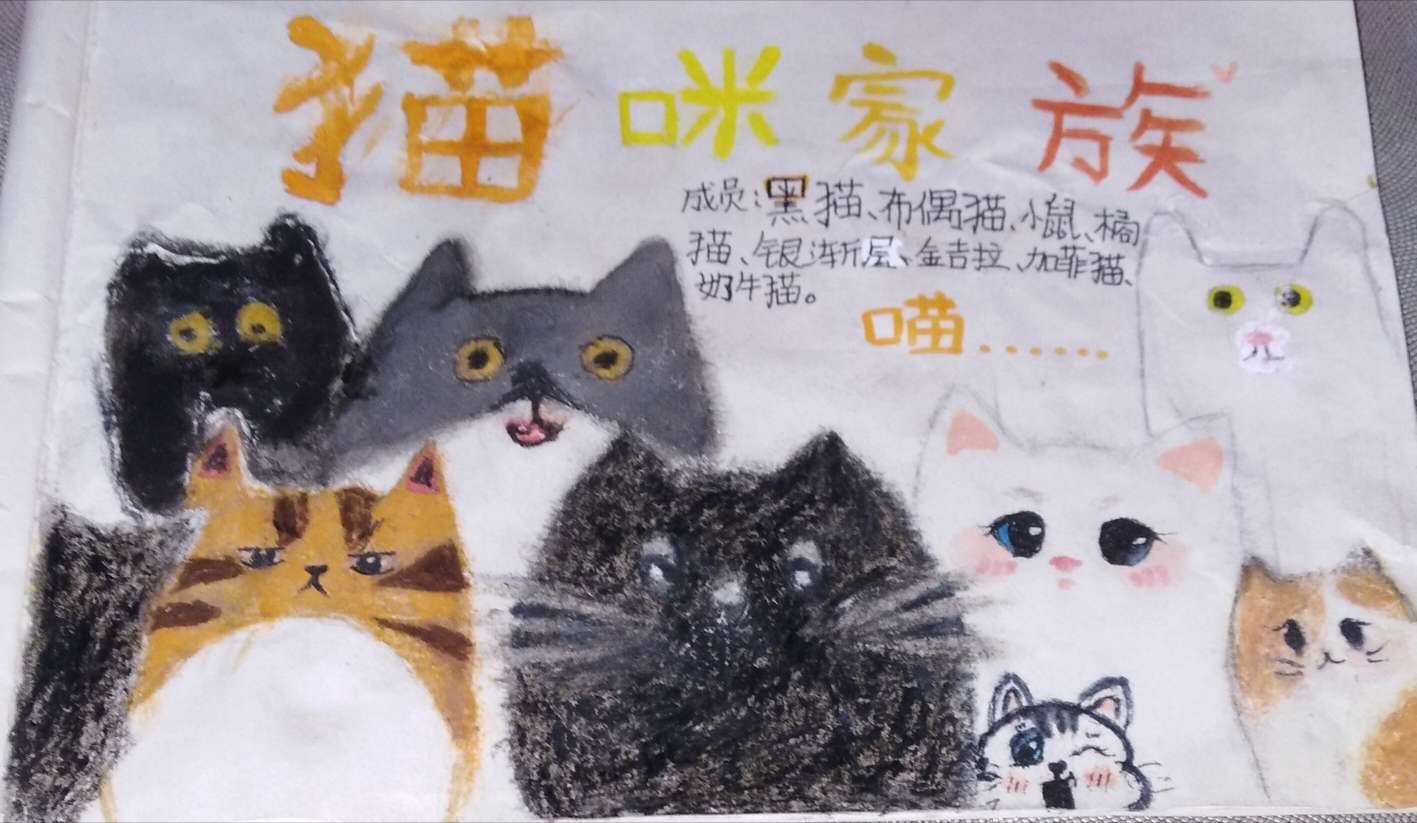 猫咪家族
成员:黑猫、布偶猫、小鼠、橘
猫、银渐层、金吉拉、加菲猫、
奶牛猫。
喵......